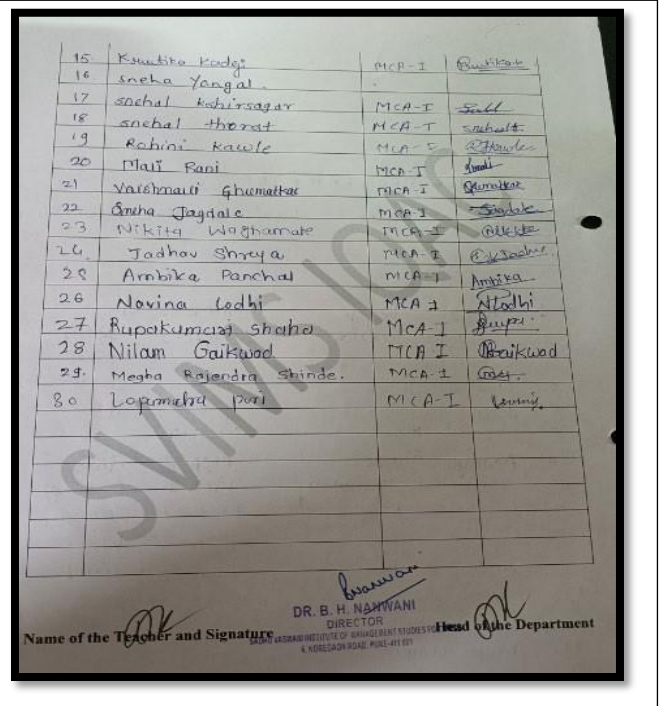 15 Krutika Kadgi MCA-I
16 sneha Yangal.
17 snehal kshirsagar MCA-I
18 snehal thorat MCA-I
19 Rohini Kawle MCA-I
20 Mali Rani MCA-I
21 Vaishnavi Ghumatkar MCA-I
22 Sneha Jagdale MCA-I Jagdale
23 Nikita Waghamate MCA-I
24. Jadhav Shreya MCA-I
25 Ambika Panchal MCA-I Ambika
26 Navina Lodhi MCA I Nlodhi
27 Rupakumari Shaha MCA-I
28 Nilam Gaikwad MCA I Gaikwad
29. Megha Rajendra Shinde. MCA-I
30 puri MCA-I
SVIMS IQAC
DR. B. H. NANWANI
DIRECTOR
SADHU VASWANI INSTITUTE OF MANAGEMENT STUDIES
6, KOREGAON ROAD, PUNE-411 001
Name of the Teacher and Signature Head of the Department